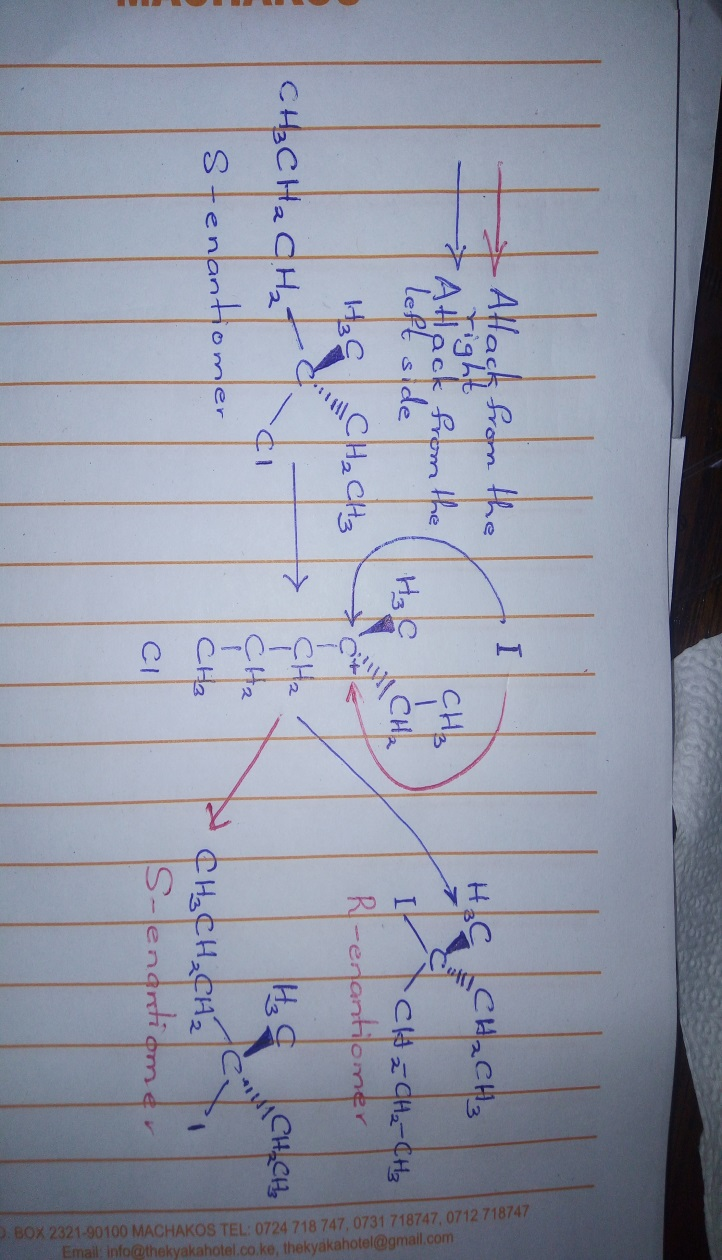 MACHAKOS
Attack from the
right
Attack from the
left side
H₃C
CH₂CH₃
C
CH₃CH₂CH₂
Cl
S-enantiomer
I
H₃C
CH₃
CH₂
C+
CH₂
CH₂
CH₃
Cl
H₃C
CH₂CH₃
C
I
CH₂-CH₂-CH₃
R-enantiomer
H₃C
CH₂CH₃
C
CH₃CH₂CH₂
I
S-enantiomer
O. BOX 2321-90100 MACHAKOS TEL: 0724 718 747, 0731 718747, 0712 718747
Email: info@thekyakahotel.co.ke, thekyakahotel@gmail.com